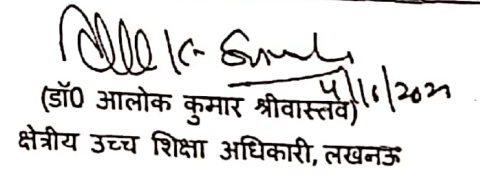 (डॉ0 आलोक कुमार श्रीवास्तव)
क्षेत्रीय उच्च शिक्षा अधिकारी, लखनऊ